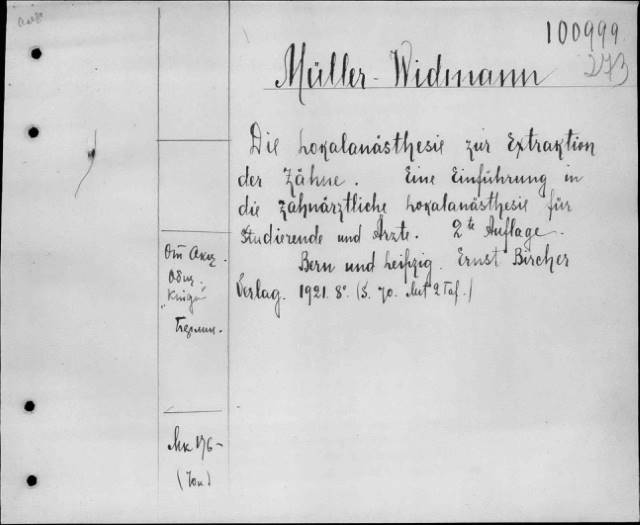 100999
273
Müller-Widmann
Die Lokalanästhesie zur Extraktion
der Zähne. Eine Einführung in
die zahnärztliche Lokalanästhesie für
Studierende und Ärzte. 2te Auflage.
Bern und Leipzig. Ernst Bircher
Verlag. 1921. 8°. (S. 70. Mit 2 Taf.)
От Акц.
Общ.
"Книга"
Берлин.
Мк 176-